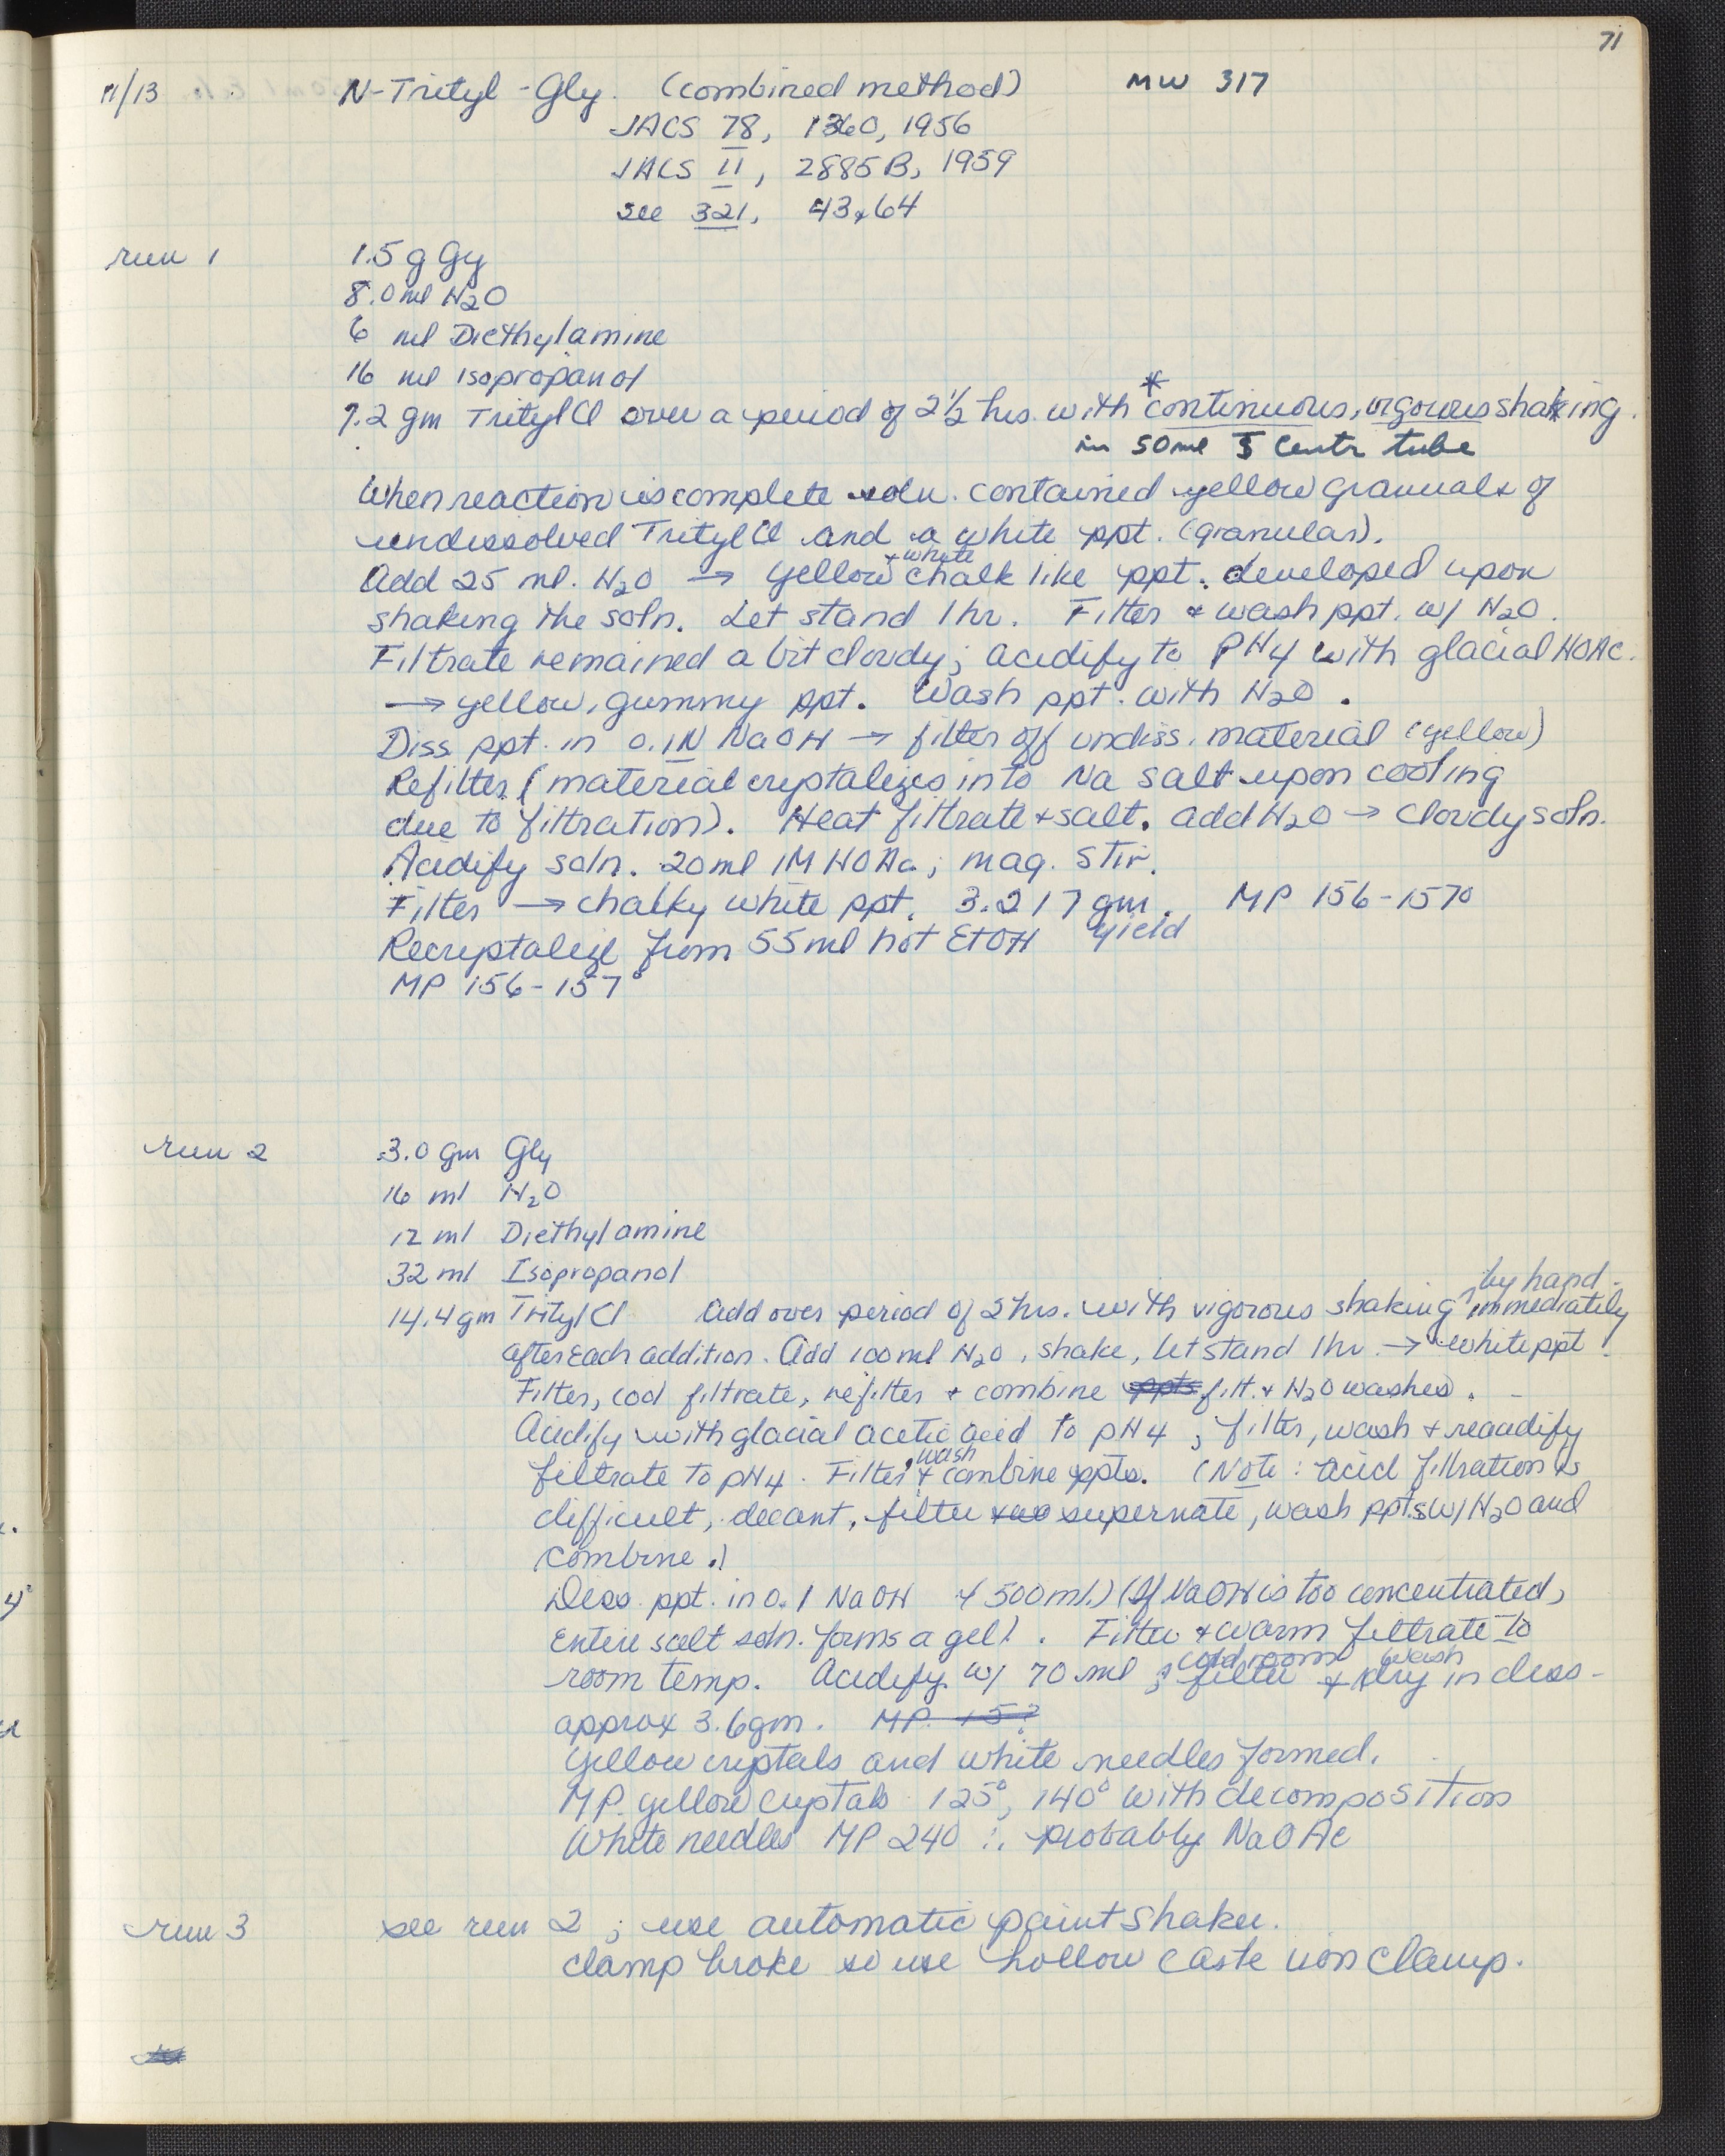 71
11/13 N-Trityl-Gly. (combined method) MW 317
JACS 78, 1360, 1956
JACS 11, 2885B, 1959
see 321, 43 & 64
run 1 1.5 g Gy
8.0 ml H2O
6 ml Diethylamine
16 ml isopropanol
*
7.2 gm Trityl Cl over a period of 2 1/2 hrs. with continuous, vigorous shaking.
in 50 ml centr tube
When reaction is complete soln. contained yellow granuals of
undissolved Trityl Cl and a white ppt. (granular).
+ white
Add 25 ml. H2O → yellow chalk like ppt. developed upon
shaking the soln. Let stand 1 hr. Filter & wash ppt. w/ H2O.
Filtrate remained a bit cloudy; acidify to PH4 with glacial HOAc.
→ yellow, gummy ppt. Wash ppt. with H2O.
Diss ppt. in 0.1N NaOH → filter off undiss. material (yellow)
Refilter (material crystalizes into Na salt upon cooling
due to filtration). Heat filtrate + salt. add H2O → cloudy soln.
Acidify soln. 20 ml 1M HOAc; mag. stir.
Filter → chalky white ppt. 3.217 gm. MP 156-157°
yield
Recrystalize from 55 ml hot EtOH
MP 156-157°
run 2 3.0 gm Gly
16 ml H2O
12 ml Diethylamine
32 ml Isopropanol
by hand
14.4 gm Trityl Cl Add over period of 2 hrs. with vigorous shaking immediately
after each addition. Add 100 ml H2O, shake, let stand 1 hr. → white ppt.
Filter, cool filtrate, refilter + combine ppts filt. + H2O washes.
Acidify with glacial acetic acid to pH 4; filter, wash + reacidify
filtrate to pH4. Filter, wash + combine ppts. (Note: acid filtration is
difficult, decant, filter supernate, wash ppts w/ H2O and
combine.)
Diss. ppt. in 0.1 NaOH (500 ml.) (If NaOH is too concentrated,
entire salt soln. forms a gel). Filter + warm filtrate to
cold room wash
room temp. Acidify w/ 70 ml ; filter + dry in dess-
approx 3.6 gm. MP. 15?
Yellow crystals and white needles formed.
MP. yellow crystals 125°, 140° with decomposition
White needles MP 240 ∴ probably NaOAc
run 3 see run 2; use automatic paint shaker.
clamp broke so use hollow caste iron clamp.